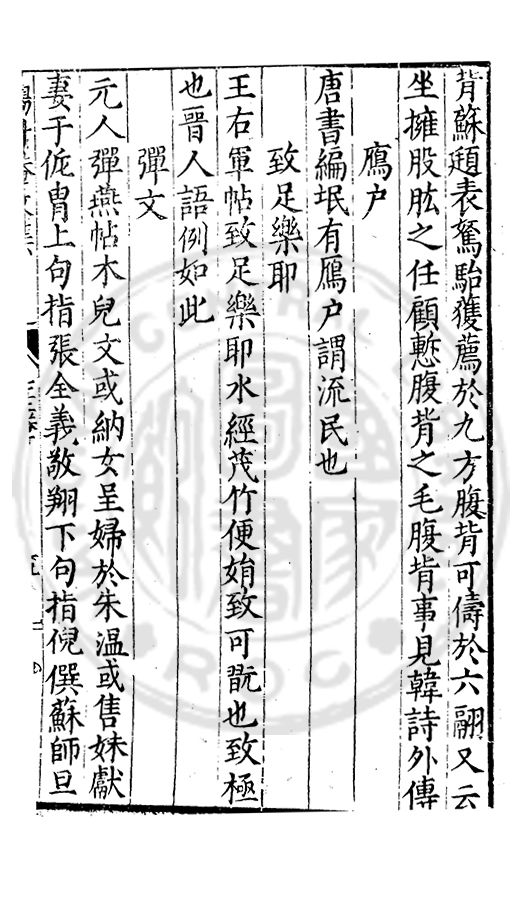 背蘇頲表駑駘獲薦於九方腹背可儔於六翮又云
坐擁股肱之任顧慙腹背之毛腹背事見韓詩外傳
鴈户
唐書編氓有鴈户謂流民也
致足樂耶
王右軍帖致足樂耶水經茂竹便娟致可翫也致極
也晉人語例如此
彈文
元人彈燕帖木兒文或納女呈婦於朱温或售妹獻
妻于侂胄上句指張全義敬翔下句指倪僎蘇師旦